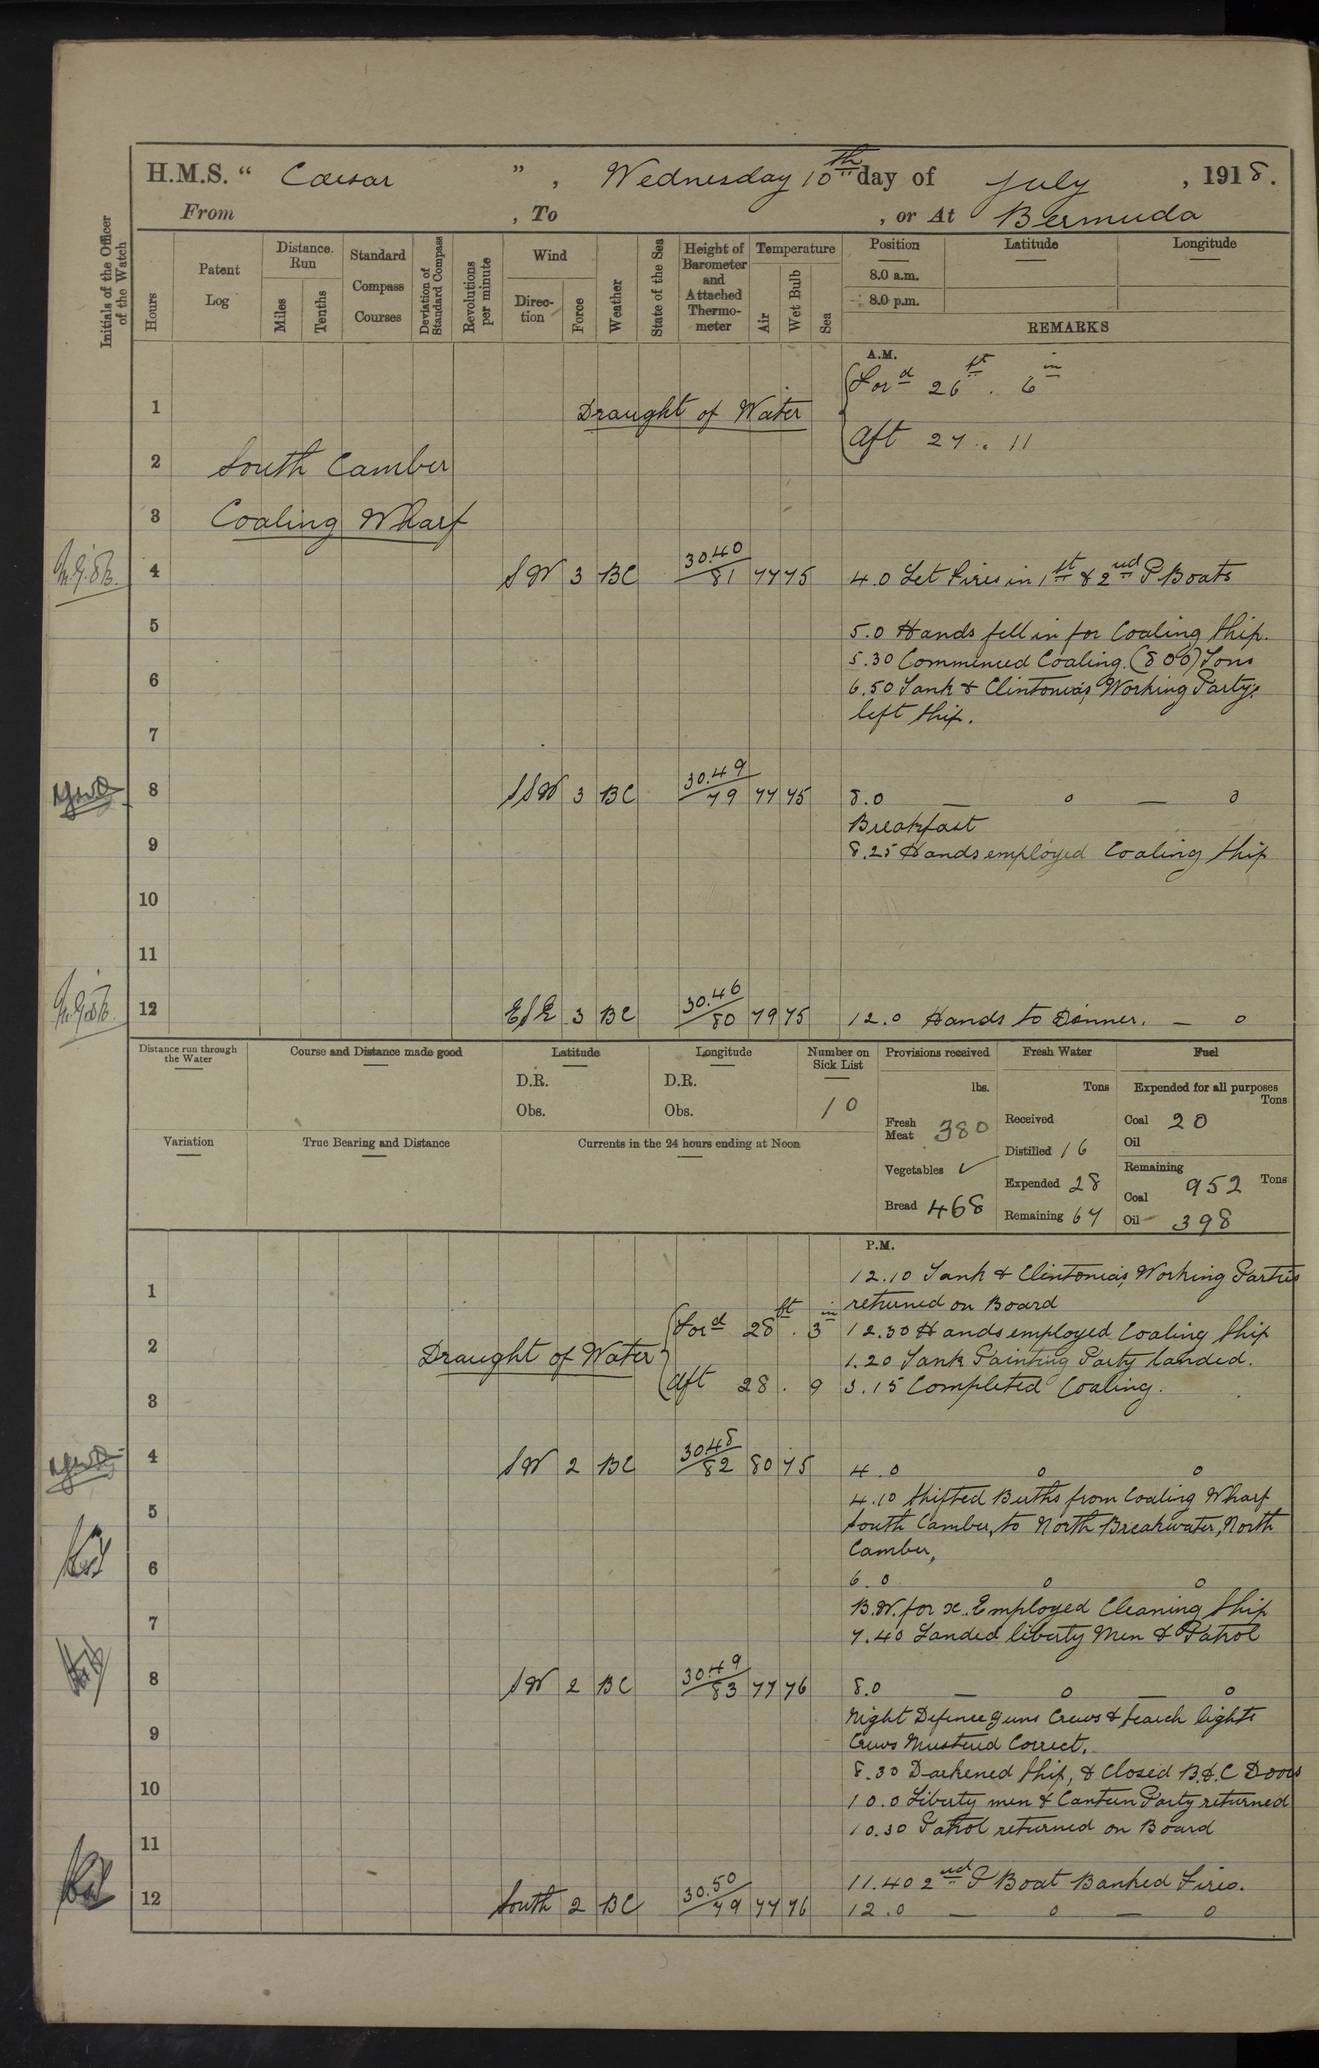 H.M.S. " Cæsar " , Wednesday 10th day of July , 1918.
From , To , or At Bermuda
Initials of the Officer of the Watch
Hours
Patent Log
Distance. Run
Miles
Tenths
Standard Compass Courses
Deviation of Standard Compass
Revolutions per minute
Wind
Direction
Force
Weather
State of the Sea
Height of Barometer and Attached Thermometer
Temperature
Air
Wet Bulb
Sea
Position
Latitude
Longitude
8.0 a.m.
8.0 p.m.
REMARKS
A.M.
Draught of Water
Ford 26ft. 6in
Aft 27. 11
1
2 South Camber
3 Coaling Wharf
4 SW 3 BC 30.40/81 77 75 4.0 Let Fires in 1st & 2nd P Boats
5 5.0 Hands fell in for Coaling Ship.
5.30 Commenced Coaling. (800) Tons
6 6.50 Tank & Clintonia's Working Party's
left Ship.
7
8 SSW 3 BC 30.49/79 77 75 8.0 — o — o
Breakfast
9 8.25 Hands employed Coaling Ship
10
11
12 ESE 3 BC 30.46/80 79 75 12.0 Hands to Dinner. — o
Distance run through the Water
Course and Distance made good
Latitude
D.R.
Obs.
Longitude
D.R.
Obs.
Number on Sick List
10
Provisions received
lbs.
Fresh Meat 380
Vegetables ✓
Bread 468
Fresh Water
Tons
Received
Distilled 16
Expended 28
Remaining 67
Fuel
Expended for all purposes
Tons
Coal 20
Oil
Remaining
Tons
Coal 952
Oil 398
Variation
True Bearing and Distance
Currents in the 24 hours ending at Noon
P.M.
12.10 Tank & Clintonia's Working Parties
1 returned on Board
Draught of Water
Ford 28ft. 3in
Aft 28. 9
2 12.30 Hands employed Coaling Ship
1.20 Tank Painting Party landed.
3 3.15 Completed Coaling.
4 SW 2 BC 30.48/82 80 75 4.0 o o
4.10 Shifted Berths from Coaling Wharf
5 South Camber, to North Breakwater, North
Camber,
6 6.0 o o
B.W. for x. Employed Cleaning Ship
7 7.40 Landed liberty Men & Patrol
8 SW 2 BC 30.49/83 77 76 8.0 — o — o
Night Defence guns Crews & search lights
9 Crews Mustered Correct.
8.30 Darkened Ship, & Closed B.&.C Doors
10 10.0 Liberty men & Canteen Party returned
10.30 Patrol returned on Board
11
11.40 2nd P Boat Banked Fires.
12 South 2 BC 30.50/79 77 76 12.0 — o — o